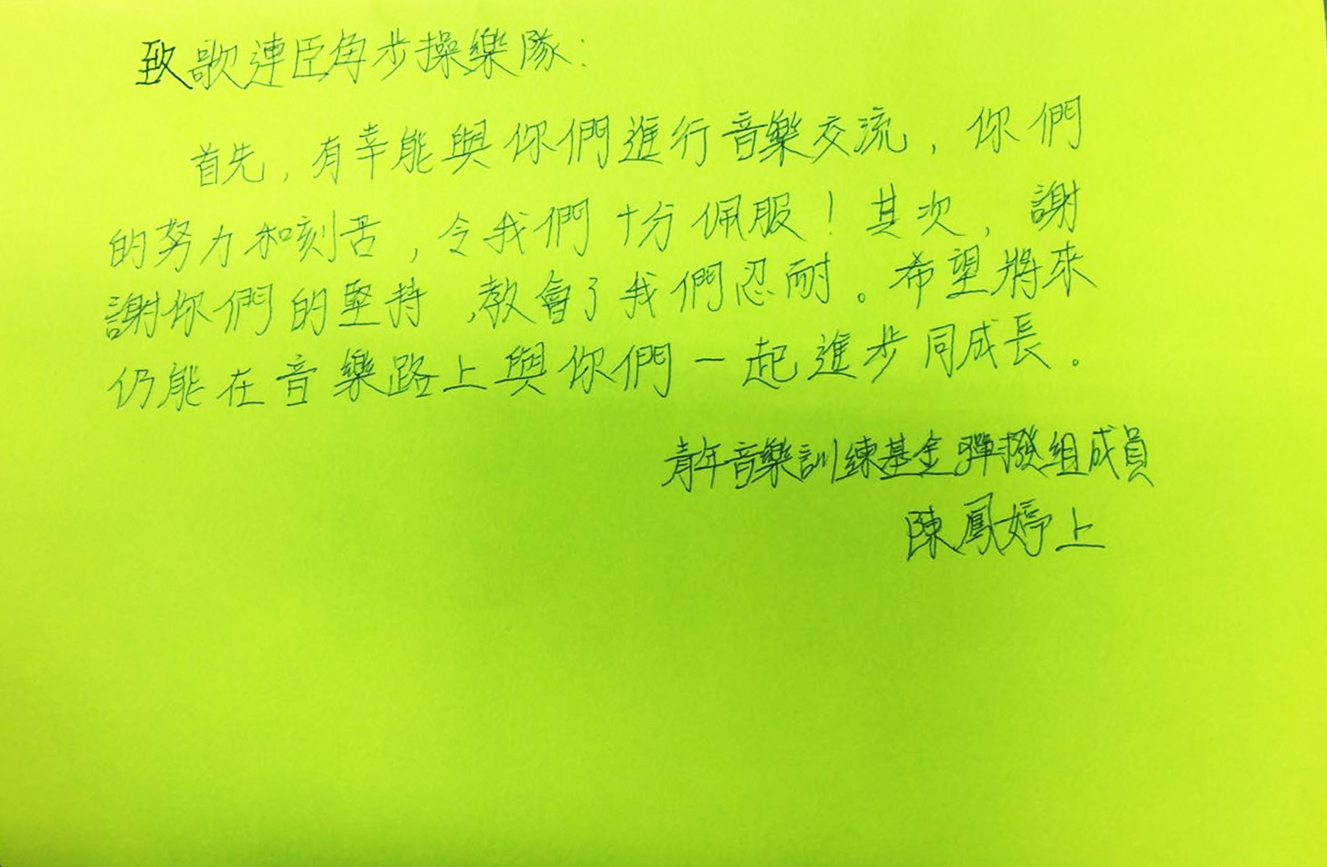 致歌連臣角步操樂隊：
首先，有幸能與你們進行音樂交流，你們
的努力和刻苦，令我們十分佩服！其次，謝
謝你們的堅持，教會了我們忍耐。希望將來
仍能在音樂路上與你們一起進步同成長。
青年音樂訓練基金彈撥組成員
陳鳳婷上